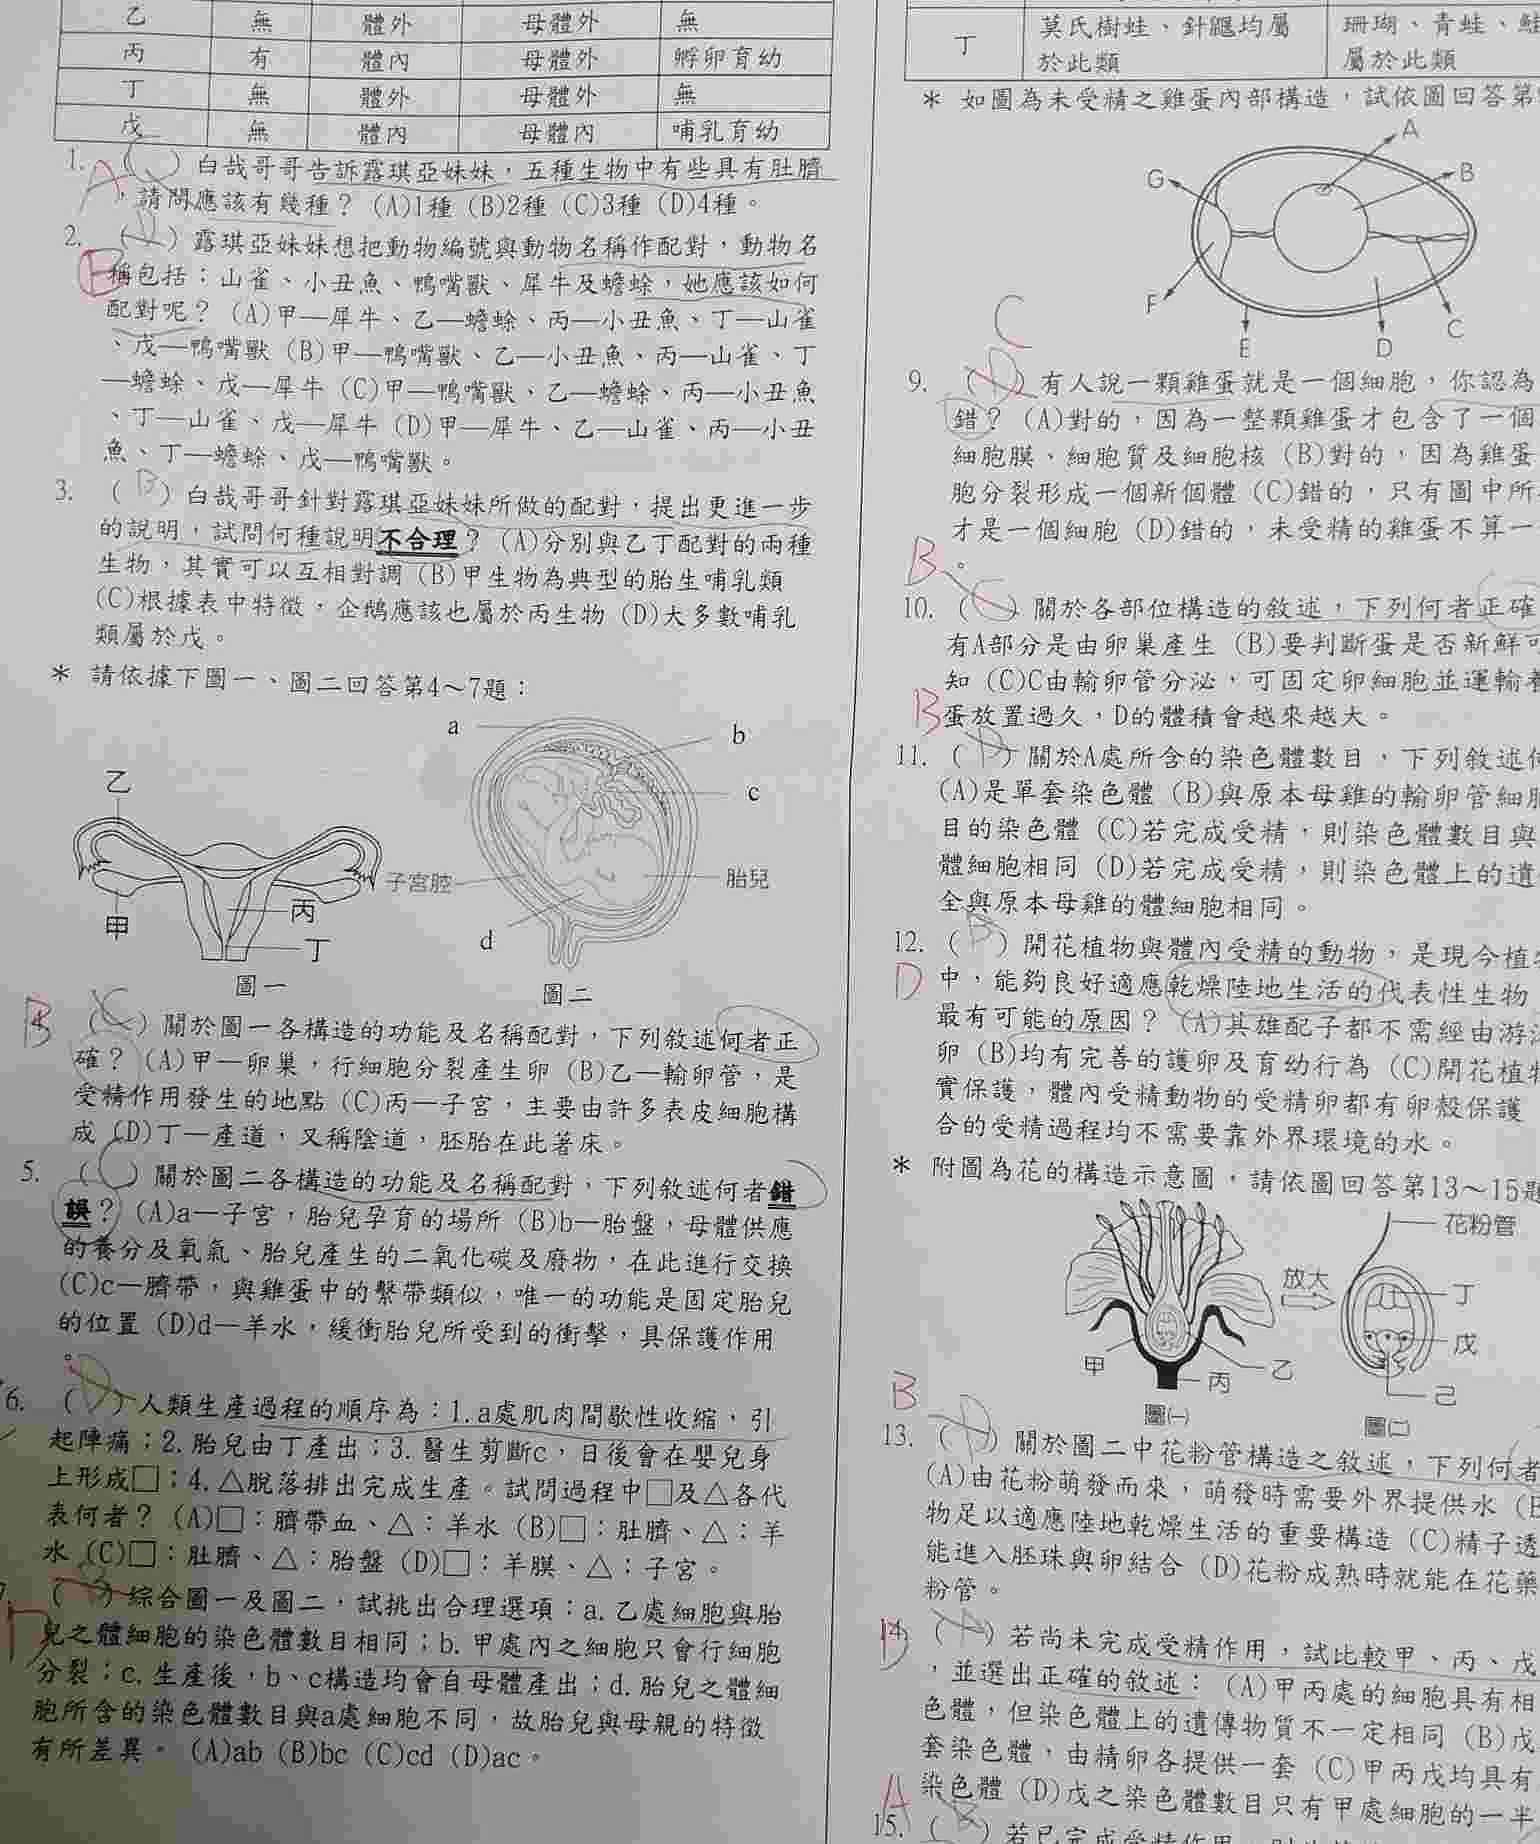 乙 無 體外 母體外 無
丙 有 體內 母體外 孵卵育幼
丁 無 體外 母體外 無
戊 無 體內 母體內 哺乳育幼
1. ( ) 白哉哥哥告訴露琪亞妹妹，五種生物中有些具有肚臍
A
，請問應該有幾種？ (A)1種 (B)2種 (C)3種 (D)4種。
2. ( ) 露琪亞妹妹想把動物編號與動物名稱作配對，動物名
B
稱包括：山雀、小丑魚、鴨嘴獸、犀牛及蟾蜍，她應該如何
配對呢？ (A)甲—犀牛、乙—蟾蜍、丙—小丑魚、丁—山雀
、戊—鴨嘴獸 (B)甲—鴨嘴獸、乙—小丑魚、丙—山雀、丁
—蟾蜍、戊—犀牛 (C)甲—鴨嘴獸、乙—蟾蜍、丙—小丑魚
、丁—山雀、戊—犀牛 (D)甲—犀牛、乙—山雀、丙—小丑
魚、丁—蟾蜍、戊—鴨嘴獸。
3. ( B ) 白哉哥哥針對露琪亞妹妹所做的配對，提出更進一步
的說明，試問何種說明不合理？ (A)分別與乙丁配對的兩種
生物，其實可以互相對調 (B)甲生物為典型的胎生哺乳類
(C)根據表中特徵，企鵝應該也屬於丙生物 (D)大多數哺乳
類屬於戊。
＊ 請依據下圖一、圖二回答第4～7題：
a
b
c
d
子宮腔
胎兒
乙
甲
丙
丁
圖一
圖二
B
( C ) 關於圖一各構造的功能及名稱配對，下列敘述何者正
確？ (A)甲—卵巢，行細胞分裂產生卵 (B)乙—輸卵管，是
受精作用發生的地點 (C)丙—子宮，主要由許多表皮細胞構
成 (D)丁—產道，又稱陰道，胚胎在此著床。
5. ( C ) 關於圖二各構造的功能及名稱配對，下列敘述何者錯
誤？ (A)a—子宮，胎兒孕育的場所 (B)b—胎盤，母體供應
的養分及氧氣、胎兒產生的二氧化碳及廢物，在此進行交換
(C)c—臍帶，與雞蛋中的繫帶類似，唯一的功能是固定胎兒
的位置 (D)d—羊水，緩衝胎兒所受到的衝擊，具保護作用
。
6. ( D ) 人類生產過程的順序為：1.a處肌肉間歇性收縮，引
起陣痛；2.胎兒由丁產出；3.醫生剪斷c，日後會在嬰兒身
上形成□；4.△脫落排出完成生產。試問過程中□及△各代
表何者？ (A)□：臍帶血、△：羊水 (B)□：肚臍、△：羊
水 (C)□：肚臍、△：胎盤 (D)□：羊膜、△：子宮。
( B ) 綜合圖一及圖二，試挑出合理選項：a.乙處細胞與胎
D
兒之體細胞的染色體數目相同；b.甲處內之細胞只會行細胞
分裂；c.生產後，b、c構造均會自母體產出；d.胎兒之體細
胞所含的染色體數目與a處細胞不同，故胎兒與母親的特徵
有所差異。 (A)ab (B)bc (C)cd (D)ac。
丁 莫氏樹蛙、針鼴均屬於此類 珊瑚、青蛙、鮭 屬於此類
＊ 如圖為未受精之雞蛋內部構造，試依圖回答第
A
B
G
F
E
D
C
C
9. ( D ) 有人說一顆雞蛋就是一個細胞，你認為
錯？ (A)對的，因為一整顆雞蛋才包含了一個
細胞膜、細胞質及細胞核 (B)對的，因為雞蛋
胞分裂形成一個新個體 (C)錯的，只有圖中所
才是一個細胞 (D)錯的，未受精的雞蛋不算一
。
B
10. ( C ) 關於各部位構造的敘述，下列何者正確
有A部分是由卵巢產生 (B)要判斷蛋是否新鮮可
知 (C)C由輸卵管分泌，可固定卵細胞並運輸養
蛋放置過久，D的體積會越來越大。
B
11. ( D ) 關於A處所含的染色體數目，下列敘述何
(A)是單套染色體 (B)與原本母雞的輸卵管細胞
目的染色體 (C)若完成受精，則染色體數目與
體細胞相同 (D)若完成受精，則染色體上的遺
全與原本母雞的體細胞相同。
12. ( B ) 開花植物與體內受精的動物，是現今植物
D
中，能夠良好適應乾燥陸地生活的代表性生物
最有可能的原因？ (A)其雄配子都不需經由游泳
卵 (B)均有完善的護卵及育幼行為 (C)開花植物
實保護，體內受精動物的受精卵都有卵殼保護
合的受精過程均不需要靠外界環境的水。
＊ 附圖為花的構造示意圖，請依圖回答第13～15題
花粉管
放大
丁
戊
己
甲
乙
丙
圖㈠
圖㈡
B
13. ( D ) 關於圖二中花粉管構造之敘述，下列何者
(A)由花粉萌發而來，萌發時需要外界提供水 (B
物足以適應陸地乾燥生活的重要構造 (C)精子透
能進入胚珠與卵結合 (D)花粉成熟時就能在花藥
粉管。
14. ( A ) 若尚未完成受精作用，試比較甲、丙、戊
，並選出正確的敘述： (A)甲丙處的細胞具有相
色體，但染色體上的遺傳物質不一定相同 (B)戊
套染色體，由精卵各提供一套 (C)甲丙戊均具有
染色體 (D)戊之染色體數目只有甲處細胞的一半
A
15. ( ) 若已完成受精作用